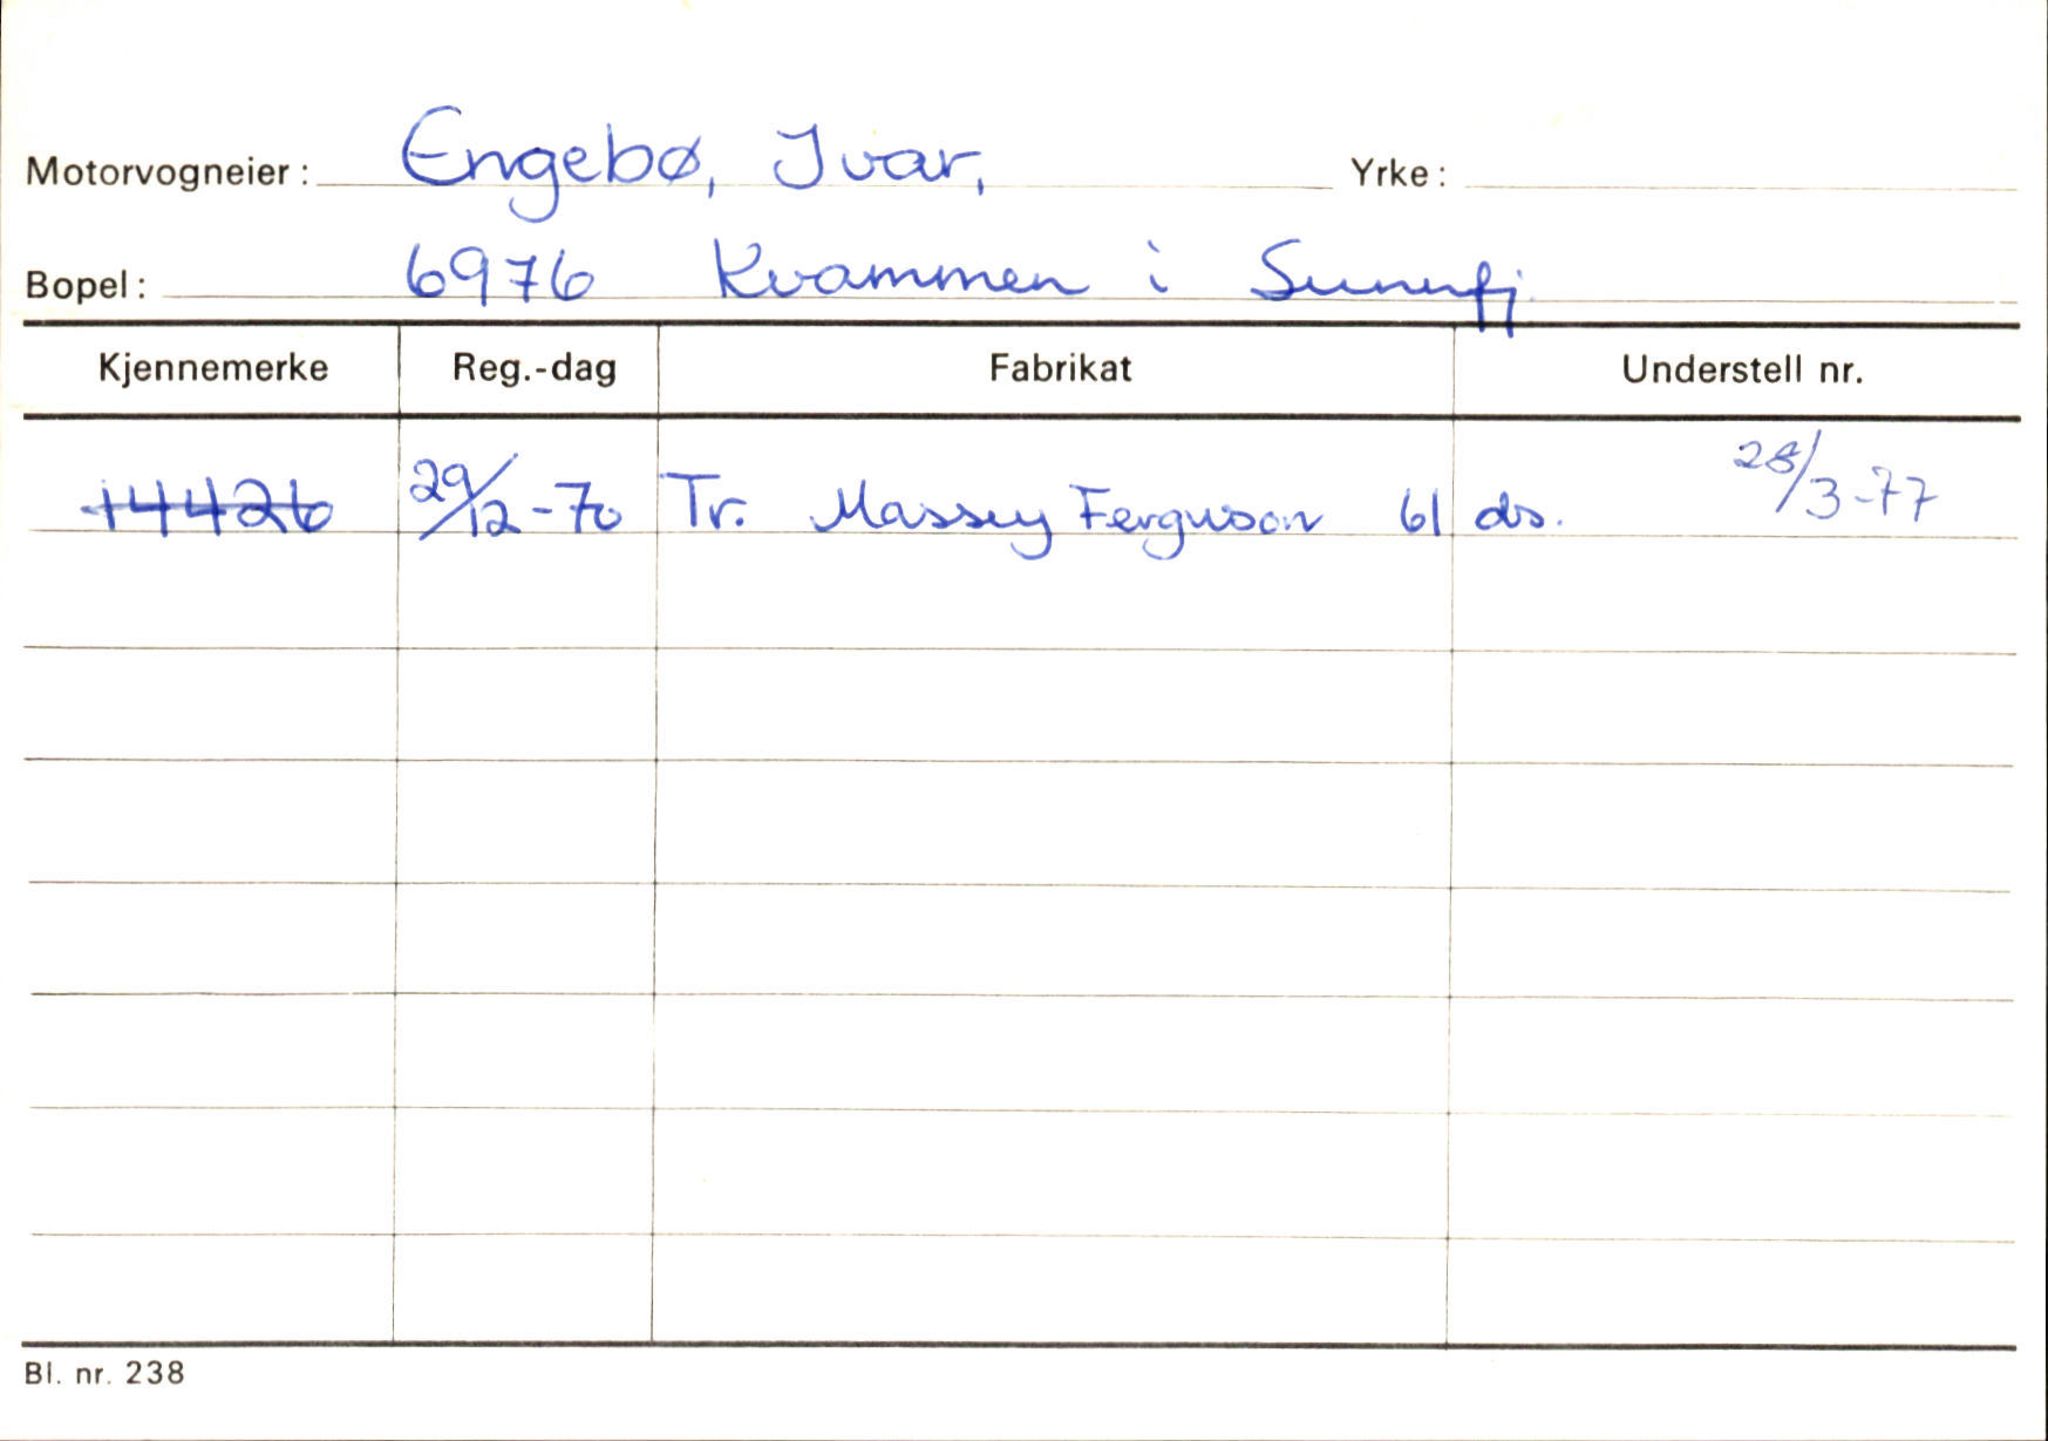 Motorvogneier: Engebø, Ivar, Yrke:
Bopel: 6976 Kvammen i Sunnfj.
Kjennemerke Reg.-dag Fabrikat Understell nr.
14426 29/12-70 Tr. Massey Ferguson 61 ds. 28/3-77
Bl. nr. 238